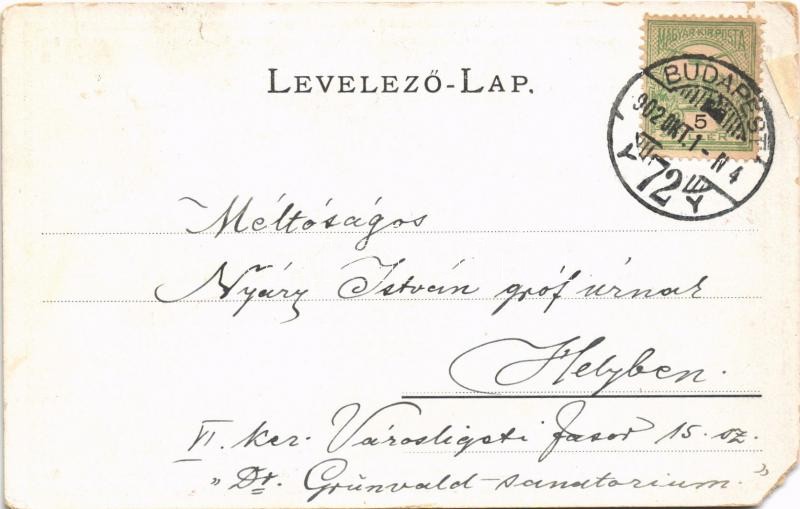 LEVELEZŐ-LAP.
MAGYAR KIR. POSTA
5
BUDAPEST
902 OKT. 1 - N 4
72
Méltóságos
Nyáry István gróf úrnak
Helyben.
VI. ker. Városligeti fasor 15. sz.
„Dr. Grünvald-sanatorium."